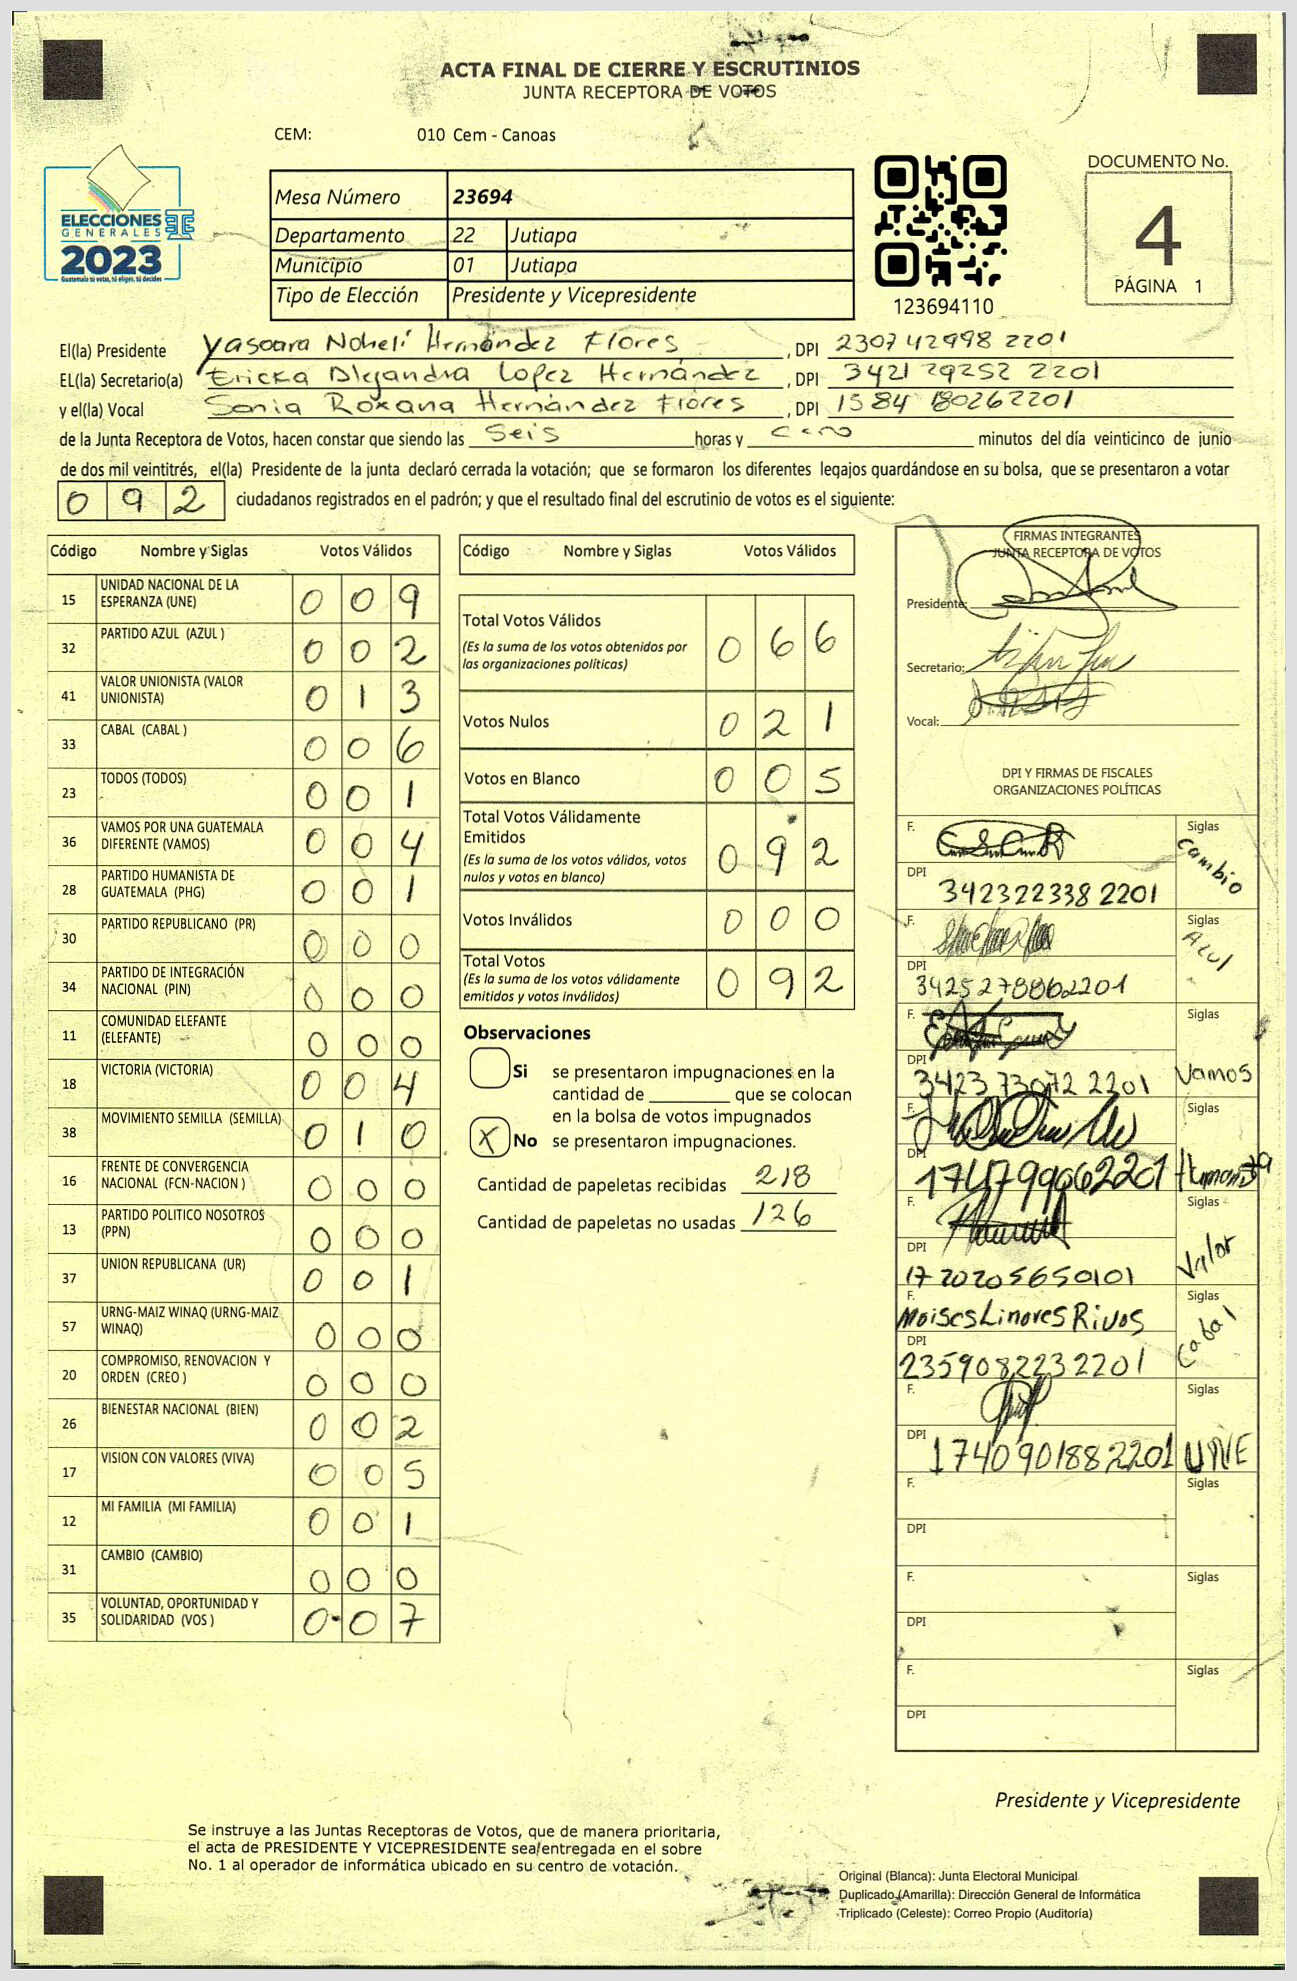 ACTA FINAL DE CIERRE Y ESCRUTINIOS
JUNTA RECEPTORA DE VOTOS
CEM: 010 Cem - Canoas
ELECCIONES
GENERALES
2023
Guatemala tú votas, tú eliges, tú decides
Mesa Número 23694
Departamento 22 Jutiapa
Municipio 01 Jutiapa
Tipo de Elección Presidente y Vicepresidente
123694110
DOCUMENTO No.
4
PÁGINA 1
El(la) Presidente Yasoara Nohelí Hernández Flores, DPI 2307 42998 2201
EL(la) Secretario(a) Ericka Alejandra Lopez Hernández, DPI 3421 29252 2201
y el(la) Vocal Sonia Roxana Hernández Flores, DPI 1584 180262201
de la Junta Receptora de Votos, hacen constar que siendo las Seis horas y cero minutos del día veinticinco de junio
de dos mil veintitrés, el(la) Presidente de la junta declaró cerrada la votación; que se formaron los diferentes legajos guardándose en su bolsa, que se presentaron a votar
092 ciudadanos registrados en el padrón; y que el resultado final del escrutinio de votos es el siguiente:
Código Nombre y Siglas Votos Válidos
15 UNIDAD NACIONAL DE LA ESPERANZA (UNE) 0 0 9
32 PARTIDO AZUL (AZUL ) 0 0 2
41 VALOR UNIONISTA (VALOR UNIONISTA) 0 1 3
33 CABAL (CABAL ) 0 0 6
23 TODOS (TODOS) 0 0 1
36 VAMOS POR UNA GUATEMALA DIFERENTE (VAMOS) 0 0 4
28 PARTIDO HUMANISTA DE GUATEMALA (PHG) 0 0 1
30 PARTIDO REPUBLICANO (PR) 0 0 0
34 PARTIDO DE INTEGRACIÓN NACIONAL (PIN) 0 0 0
11 COMUNIDAD ELEFANTE (ELEFANTE) 0 0 0
18 VICTORIA (VICTORIA) 0 0 4
38 MOVIMIENTO SEMILLA (SEMILLA) 0 1 0
16 FRENTE DE CONVERGENCIA NACIONAL (FCN-NACION ) 0 0 0
13 PARTIDO POLITICO NOSOTROS (PPN) 0 0 0
37 UNION REPUBLICANA (UR) 0 0 1
57 URNG-MAIZ WINAQ (URNG-MAIZ WINAQ) 0 0 0
20 COMPROMISO, RENOVACION Y ORDEN (CREO ) 0 0 0
26 BIENESTAR NACIONAL (BIEN) 0 0 2
17 VISION CON VALORES (VIVA) 0 0 5
12 MI FAMILIA (MI FAMILIA) 0 0 1
31 CAMBIO (CAMBIO) 0 0 0
35 VOLUNTAD, OPORTUNIDAD Y SOLIDARIDAD (VOS ) 0 0 7
Código Nombre y Siglas Votos Válidos
Total Votos Válidos 0 6 6
(Es la suma de los votos obtenidos por
las organizaciones políticas)
Votos Nulos 0 2 1
Votos en Blanco 0 0 5
Total Votos Válidamente
Emitidos 0 9 2
(Es la suma de los votos válidos, votos
nulos y votos en blanco)
Votos Inválidos 0 0 0
Total Votos 0 9 2
(Es la suma de los votos válidamente
emitidos y votos inválidos)
Observaciones
Si se presentaron impugnaciones en la
cantidad de ________ que se colocan
en la bolsa de votos impugnados
X No se presentaron impugnaciones.
Cantidad de papeletas recibidas 218
Cantidad de papeletas no usadas 126
FIRMAS INTEGRANTES
JUNTA RECEPTORA DE VOTOS
Presidente:
Secretario:
Vocal:
DPI Y FIRMAS DE FISCALES
ORGANIZACIONES POLÍTICAS
F. Siglas
Cambio
DPI 342322338 2201
F. Siglas
Azul
DPI 3425278862201
F. Siglas
DPI 3423 73072 2201 Vamos
F. Siglas
DPI 1747999062201 Humanista
F. Siglas
Valor
DPI 1720205650101
F. Siglas
Moises Linares Rivas
Cabal
DPI 2359082232201
F. Siglas
DPI 1740901882201 UNE
F. Siglas
DPI
F. Siglas
DPI
F. Siglas
DPI
Presidente y Vicepresidente
Se instruye a las Juntas Receptoras de Votos, que de manera prioritaria,
el acta de PRESIDENTE Y VICEPRESIDENTE sea entregada en el sobre
No. 1 al operador de informática ubicado en su centro de votación.
Original (Blanca): Junta Electoral Municipal
Duplicado (Amarilla): Dirección General de Informática
Triplicado (Celeste): Correo Propio (Auditoría)